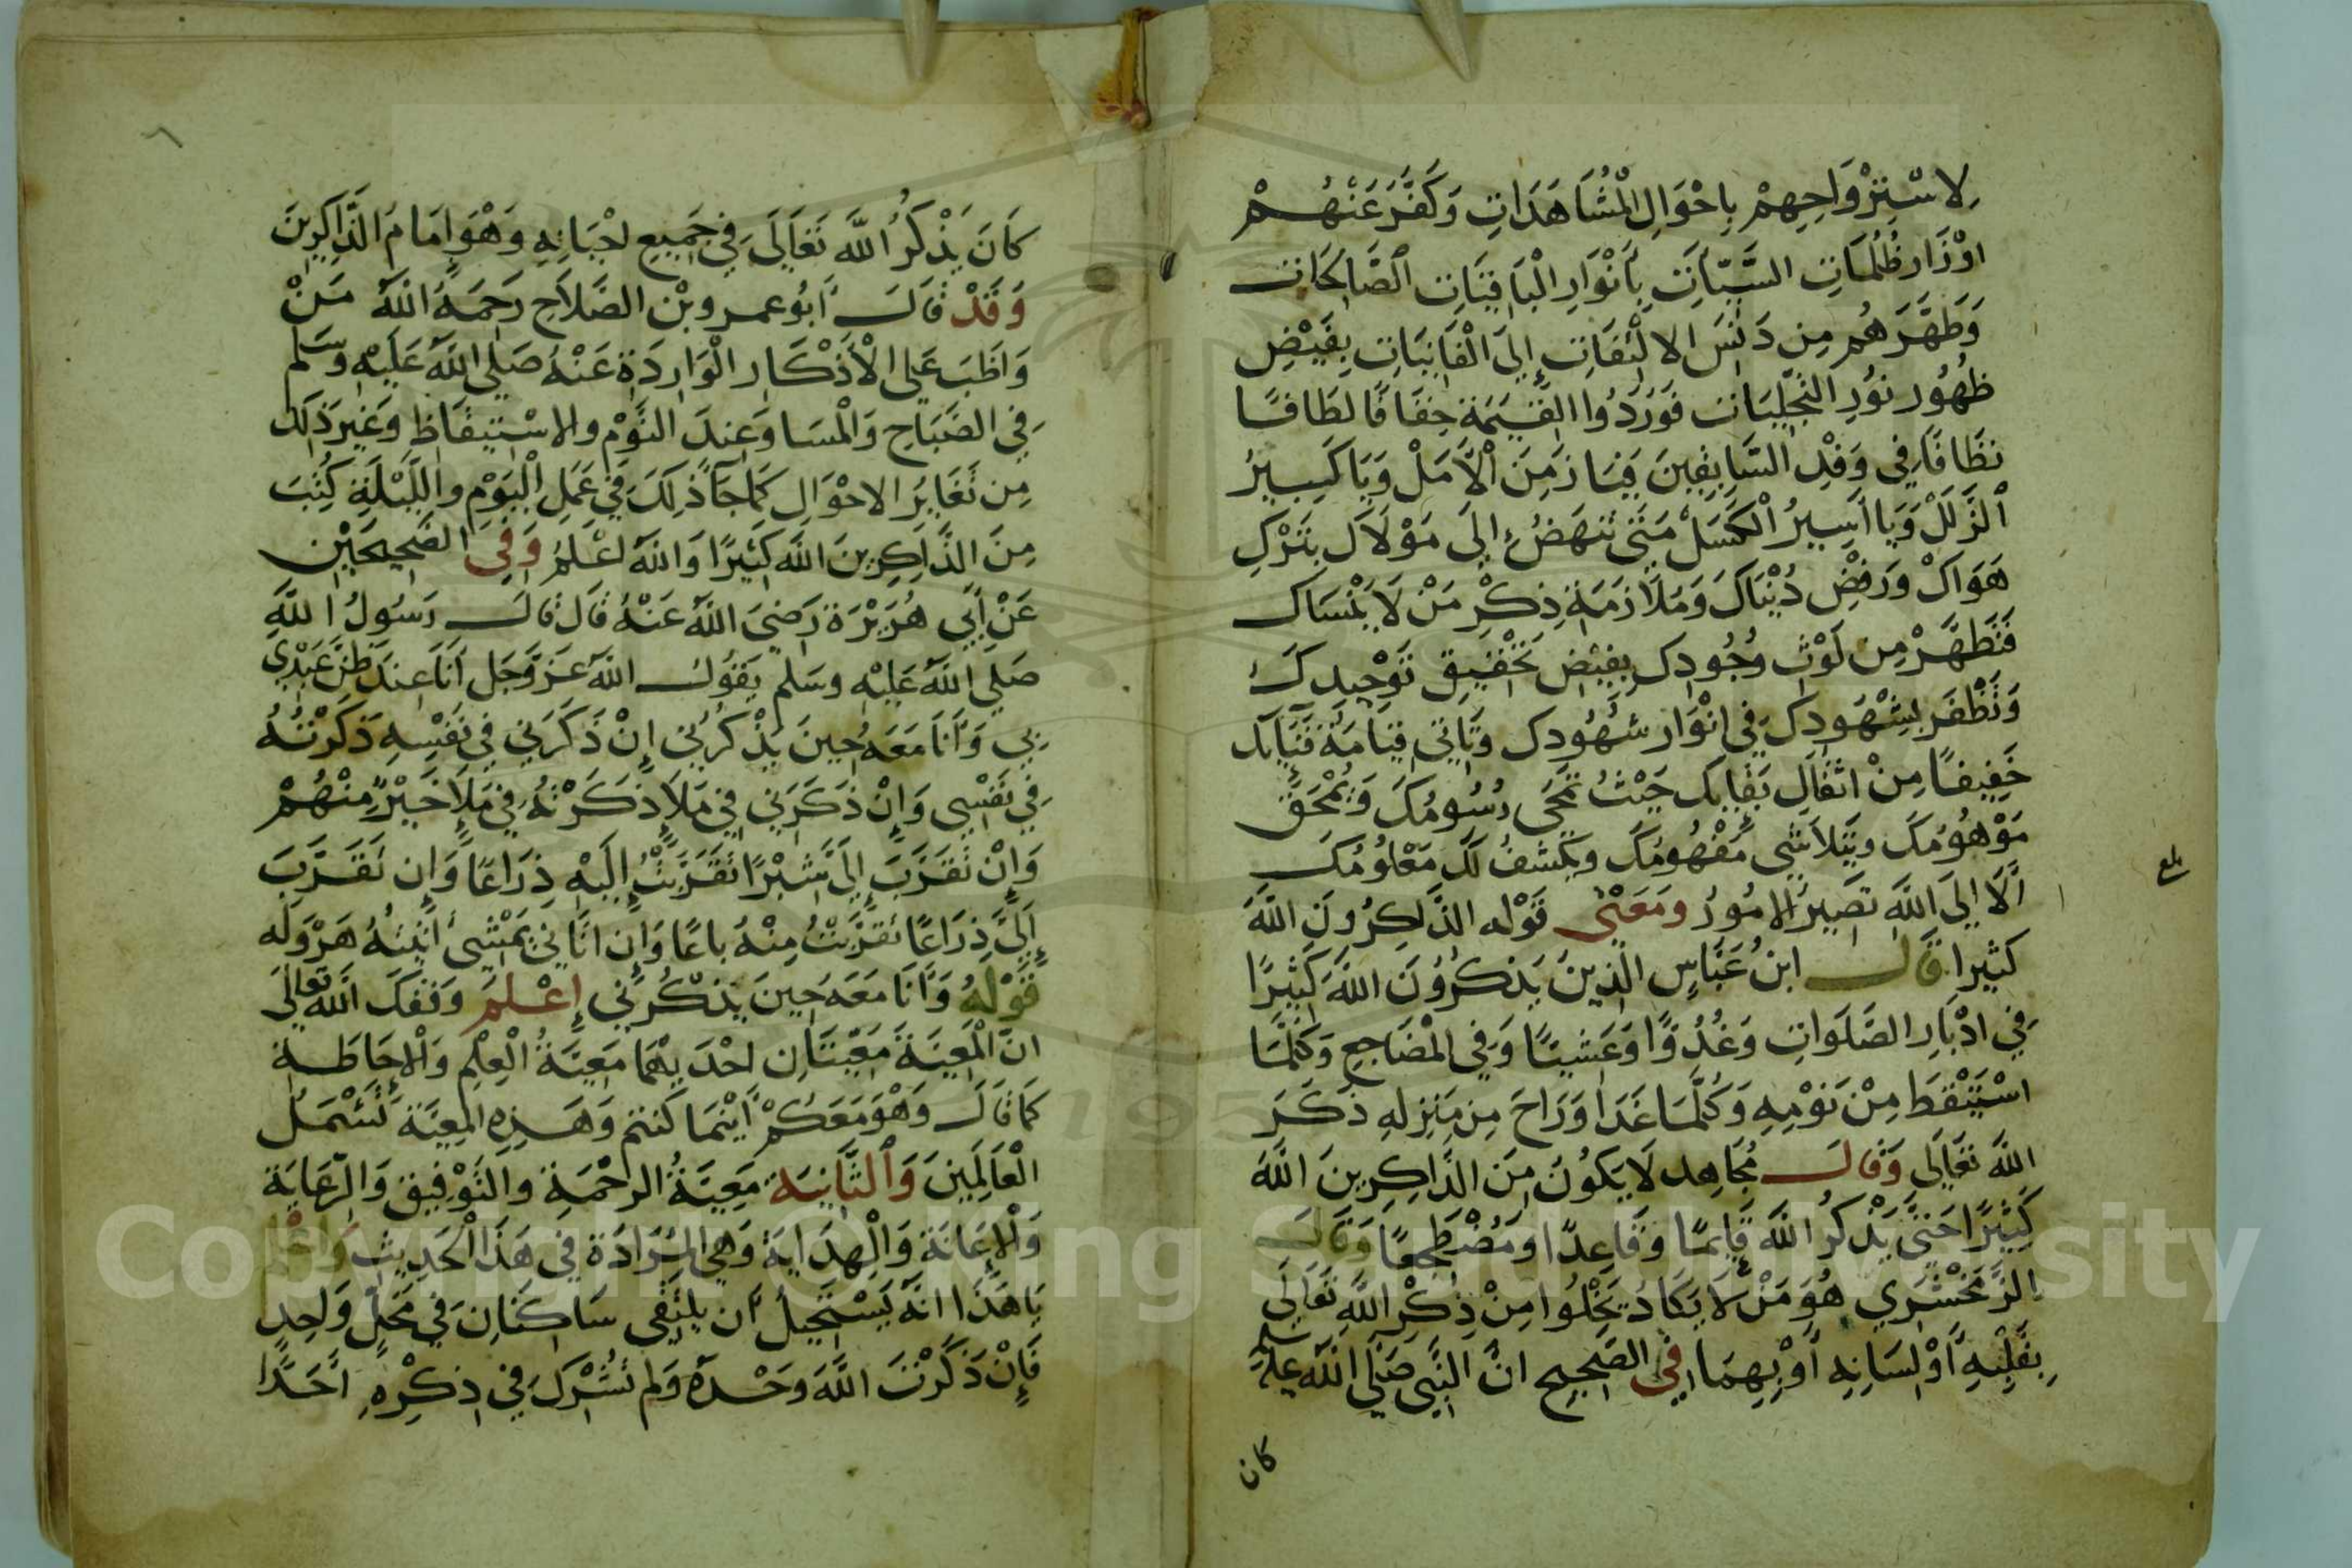 لاسْتِرْوَاحِهِمْ بِاحْوَالِ الْمُشَاهَدَاتِ وَكَفَّرَ عَنْهُمْ
اوْزَار ظُلُمَاتِ السَّيِّاَتِ بِاَنْوَارِ الْبَاقِيَاتِ الصَّالِحَاتِ
وَطَهَّرَهُم مِن دَنَسَ الالْتِفَاتِ إِلَى الْفَانِيَاتِ بِفَيْضِ
ظُهُور نُوُرِ التَّجَلِيَات فَوَرَدُوا القِيَمَة خِفَافًا لطَافًا
نظَافًا فِي وَفْدِ السَّابِقِينَ فَيَا زَمِنَ الْاَمَلْ وَيَا كَسِيرُ
الزَّلَلْ وَيَا اَسِيرُ الْكَسَلْ مَتَى تَنهَضُ إِلَى مَوْلَاك بتَرْكِ
هَوَاكْ وَرَفْضِ دُنْيَاكَ وَمُلَازَمَةِ ذِكْرِ مَنْ لَا يَنْسَاك
فَتَطَهَّرْ مِن لَوْثِ وُجُودِك بِفَيْضِ تَحْقِيقِ تَوْحِيدِكَ
وَتَظْفَر بِشُهُودِكَ فِي انْوَار شُهُودِك وتَاتِي قِيَامَةَ فَنَايِك
خَفِيفًا مِنْ اثقَالِ بَقَايِك حَيْثُ تمْحَى رُسُومُكَ وَيُمْحَقُ
مَوْهُوُمُكَ ويَتَلَاشَى مَفْهُومُكَ ويكشفُ لَكَ مَعْلُوُمُكَ
اَلَا إلَى اللَّهِ تَصِيرُ الامُورُ ومَعْنَى قَوْلِه الذَّاكِرُونَ اللَّهَ
كثيرًا قَالَ ابنُ عَبَّاسٍ الَّذِينَ يَذْكرُوُنَ اللَّهَ كَثِيرًا
فِي ادْبَارِ الصَّلَوَاتِ وَغُدُوًّا وَعَشِيًّا وَفِي الْمَضَاجِعِ وَكُلَّمَا
اسْتَيْقَظَ مِنْ نَوْمِهِ وَكُلَّمَا غَدَا وَرَاحَ مِن مَنِزلهِ ذَكَرَ
اللَّهَ تَعَالَى وَقَالَ مُجَاهِد لَا يَكُوُن مِنَ الذَّاكِرِينَ اللَّهَ
كَثِيرًا حَتَى يَذْكرُ اللَّهَ قَايمًا وَقَاعِدًا ومَضْطجِعًا وَقَالَ
الزَّمَخْشَرِي هُوَ مَنْ لَا يَكَادُ يَخْلُوا مِنْ ذِكْرِ اللَّهِ تَعَالَى
بِقَلْبِهِ اَوْ لِسَانِهِ اَوْ بِهِمَا فِي الصَّحِيحِ انَّ النَّبِيِ صَلِي اللَّهُ عليه وسلم
كان
بلغ
كَانَ يَذْكرُ اللَّهَ تَعَالَى فِي جَمِيعِ احْيَانِهِ وَهْوَ إمَامُ الذَّاكِرِينَ
وَقَدْ قَالَ اَبُو عمرو بْن الصَّلَاحِ رَحِمَهُ اللَّهُ مَنْ
وَاظَبَ عَلَى الْأَذْكَارِ الْوَارِدَةِ عَنْهُ صَلِي اللَّهُ عَلَيْهِ وَسَلم
فِي الصَّبَاحِ وَالْمَسَا وَعِندَ النَّوْمِ والاسْتِيقَاظِ وَغَيرَ ذَلِكَ
مِن تَغَايُر الاحْوَالِ كَمَا جَآ ذَلِكَ فِي عَمَلِ الْيَوْمِ وَاللَّيْلَةِ كُتِبَ
مِنَ الذَّاكِرِينَ اللَّهَ كَثِيرًا وَاللَّهُ اعْلَمُ وَفِي الصَّحِيحَيْنِ
عَنْ أَبِي هُرَيْرَة رَضِيَ اللَّهُ عَنْهُ قَال قَالَ رَسُولُ اللَّهِ
صَلِي اللَّهُ عَلَيْهِ وسَلم يَقُولُ اللَّهُ عَزَّ وَجَل اَنَا عِندَ ظَنّ عَبْدِي
بِي وَأَنَا مَعَهُ حِينَ يَذْكرُنِي إنْ ذَكَرَنِي فِي نَفْسِهِ ذَكَرْتُهُ
فِي نَفْسِي وَإنْ ذَكَرَنِي فِي مَلَإٍ ذكَرْتُهُ فِي مَلَإٍ خَيْرٍ مِنْهُمْ
وَإنْ تقَرَّبَ إلَيَّ شِبْرًا تَقَرَّبْتُ إلَيْهِ ذِرَاعًا وَإن تَقَرَّبَ
إلَيَّ ذِرَاعًا تَقرَّبْتُ مِنْهُ باعًا وَإن اتَانِي يَمْشِي أتَيْتُهُ هَرْوَلَه
قَوْلُهُ وَأَنَا مَعَهُ حِينَ يَذكُرُنِي إعْلم وَفقكَ اللَّه تَعالَى
انَّ الْمَعِيَةَ مَعِيَّتَانِ احْدَيهُمَا مَعِيَّةُ الْعِلْمِ وَالْإحَاطَةِ
كَمَا قَالَ وَهْوَ مَعَكُمْ اَيْنمَا كنتم وَهَذِهِ المَعِيَّة تَشْمَلُ
الْعَالَمِينَ وَالثَّانِيَة مَعِيَّةُ الرحْمَةِ والتَوْفِيق وَالرِّعَايَة
وَالْإعَانَة وَالْهِدَايَة وَهِيَ الْمُرَادَة فِي هَذَا الْحَدِيثِ وَاعْلم
يَا هَذَا انَّه يَسْتَحِيلُ اَن يلْتَقِى سَاكنَانِ فِي مَحَلٍّ وَاحِدٍ
فَإنْ ذَكَرْتَ اللَّهَ وَحْدَهُ وَلم تُشْرِكَ فِي ذِكْرِهِ احَدًا